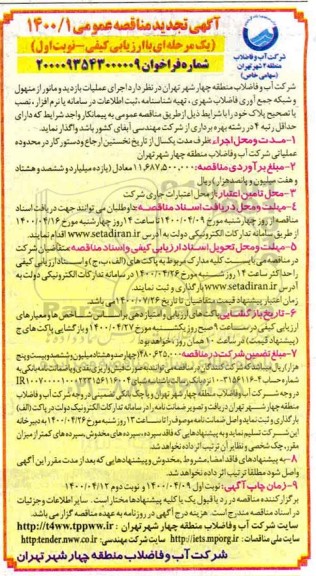 آگهی تجدید مناقصه عمومی ۱۴۰۰/۱
(یک مرحله ای با ارزیابی کیفی - نوبت اول)
شماره فراخوان ۲۰۰۰۰۹۳۵۴۳۰۰۰۰۰۹
شرکت آب و فاضلاب
منطقه ۴ شهر تهران
(سهامی خاص)
شرکت آب و فاضلاب منطقه چهار شهر تهران در نظر دارد اجرای عملیات بازدید و مانور از منهول
و شبکه جمع آوری فاضلاب شهری ، تهیه شناسنامه ، ثبت اطلاعات در سامانه یا نرم افزار ، نصب
یا تصحیح پلاک خود را با شرایط ذیل از طریق مناقصه عمومی به پیمانکار واجد شرایط که دارای
حداقل رتبه ۴ در رشته بهره برداری از شرکت مهندسی آبفای کشور باشد واگذار نماید.
۱-مدت و محل اجرا: ظرف مدت یکسال از تاریخ نخستین ارجاع و دستور کار در محدوده
عملیاتی شرکت آب و فاضلاب منطقه چهار شهر تهران
۲-مبلغ برآوردی مناقصه: ۱۱,۶۸۷,۵۰۰,۰۰۰ معادل (یازده میلیارد و ششصد و هشتاد
و هفت میلیون و پانصد هزار) ریال
۳-محل تامین اعتبار: از محل اعتبارات جاری شرکت
۴-مهلت و محل دریافت اسناد مناقصه: داوطلبان می توانند جهت دریافت اسناد
مناقصه از روز چهارشنبه مورخ ۱۴۰۰/۰۴/۰۹ تا ساعت ۱۴ روز چهارشنبه مورخ ۱۴۰۰/۰۴/۱۶
از طریق سامانه تدارکات الکترونیکی دولت به آدرس www.setadiran.ir اقدام نمایند.
۵-مهلت و محل تحویل اسناد ارزیابی کیفی و اسناد مناقصه: متقاضیان شرکت
در مناقصه می بایست کلیه مدارک مربوط به پاکت های (الف، ب، ج) و اسناد ارزیابی کیفی
را حداکثر ساعت ۱۴ روز شنبه مورخ ۱۴۰۰/۰۴/۲۶ در سامانه تدارکات الکترونیکی دولت به
آدرس www.setadiran.ir بارگذاری و ثبت نمایند.
زمان اعتبار پیشنهاد قیمت متقاضیان تا تاریخ ۱۴۰۰/۰۷/۲۶ می باشد.
۶-تاریخ بازگشایی: پاکت های ارزیابی و امتیازدهی بر اساس شاخص ها و معیارهای
ارزیابی کیفی در ساعت ۹ صبح روز یکشنبه مورخ ۱۴۰۰/۰۴/۲۷ و بازگشایی پاکت های ج
(پیشنهاد قیمت) در ساعت ۱۰ همان روز خواهد بود.
۷-مبلغ تضمین شرکت در مناقصه: ۴۸۰,۶۲۵,۰۰۰ (چهارصد و هشتاد میلیون و ششصد و بیست و پنج
هزار) ریال
در وجه شرکت آب و فاضلاب منطقه چهار شهر تهران
۸-به پیشنهادهای فاقد امضا، مشروط، مخدوش و پیشنهادهایی که بعد از مدت مقرر این آگهی
واصل شود مطلقا ترتیب اثر داده نخواهد شد.
۹-زمان چاپ آگهی: نوبت اول ۱۴۰۰/۰۴/۰۹ و نوبت دوم ۱۴۰۰/۰۴/۱۲
برگزار کننده مناقصه در رد یا قبول یک یا کلیه پیشنهادها مختار است. سایر اطلاعات و جزئیات
در اسناد مناقصه مندرج است. هزینه درج آگهی در روزنامه به عهده مناقصه گزار می باشد.
سایت شرکت آب و فاضلاب منطقه چهار تهران : http://t4ww.tppww.ir
سایت ملی مناقصات : http://iets.mporg.ir سایت شرکت مهندسی: http:tender.nww.co.ir
شرکت آب و فاضلاب منطقه چهار شهر تهران